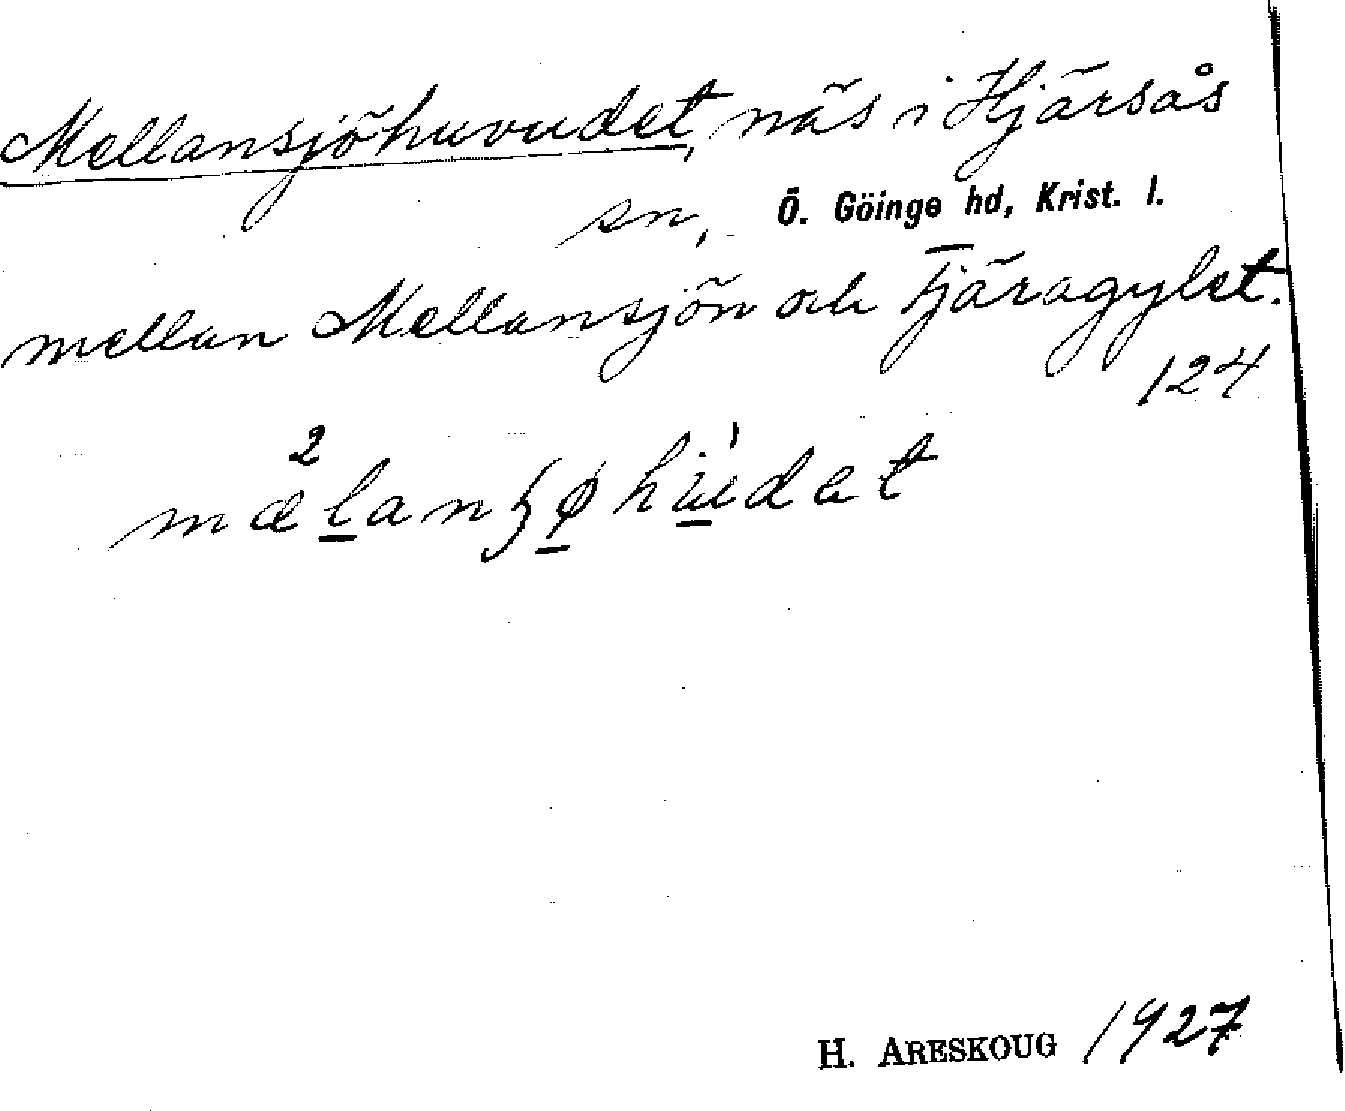 Mellansjöhuvudet, näs i Hjärsås
sn, Ö. Göinge hd, Krist. l.
mellan Mellansjön och Tjäragylet.
124
2
H. ARESKOUG 1927